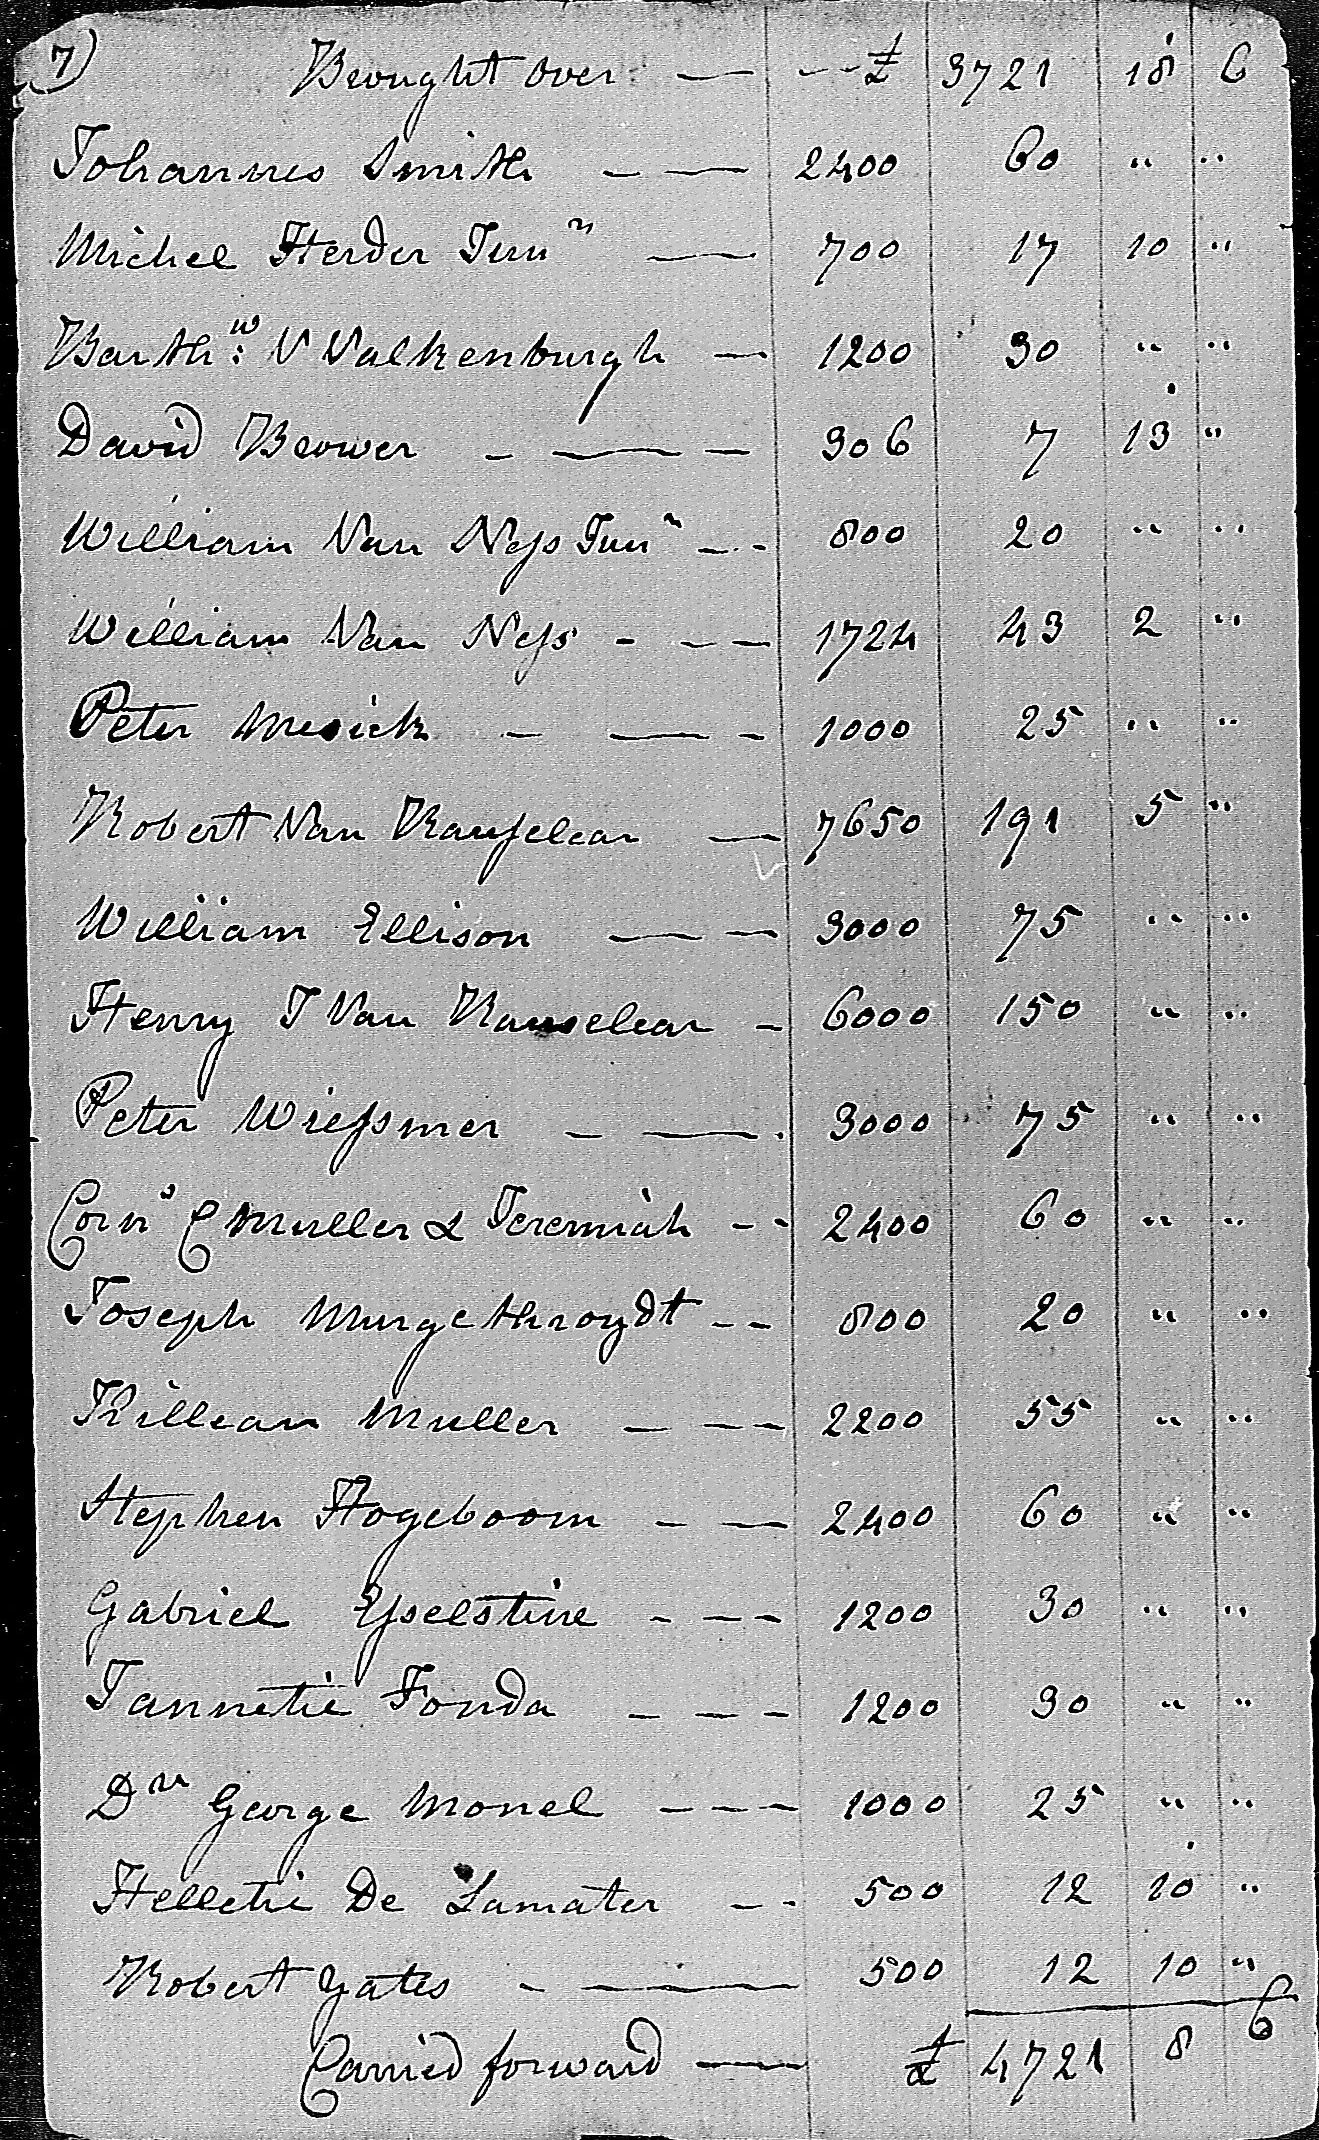 7) Brought over — -- £ 3721 18 6
Johannes Smith — — 2400 60 " "
Michel Herder Junr — 700 17 10 "
Barthw: V Valkenburgh — 1200 30 " "
David Brower - — - 306 7 13 "
William Van Ness Junr - - - 800 20 " "
William Van Ness - - — 1724 43 2 "
Peter Mesick - — - 1000 25 " "
Robert Van Ranselear — 7650 191 5 "
William Ellison — — 3000 75 " "
Henry J Van Ranselear - 6000 150 " "
Peter Wiessmer - — 3000 75 " "
Corns C Muller & Jeremiah - - 2400 60 " "
Joseph Murgethroydt - - 800 20 " "
Killean Muller - — - 2200 55 " "
Stephen Hogeboom - — 2400 60 " "
Gabriel Esselstine - - - 1200 30 " "
Jannetie Fonda - - - 1200 30 " "
Dr George Monel - - - 1000 25 " "
Helletie De Lamater - - 500 12 10 "
Robert Yates - — 500 12 10 "
Carried forward — £ 4721 8 6